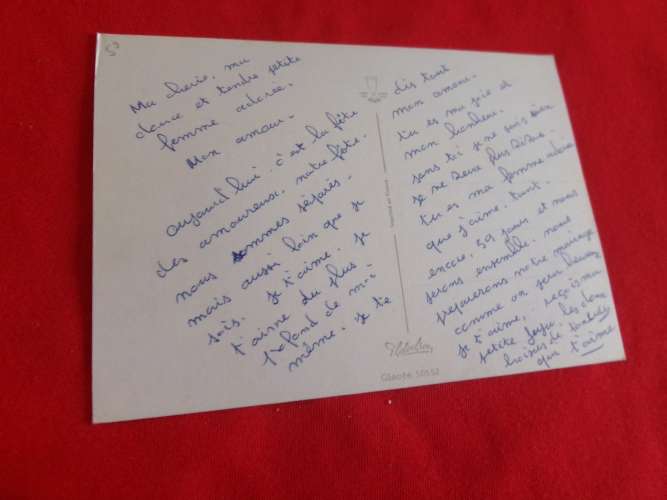 59
Ma cherie, ma
douce et tendre petite
femme adoree.
Mon amour -
aujourd'hui. c'est la fête
des amoureux. notre fête.
nous sommes séparés -
mais aussi loin que je
sois. je t'aime. je
t'aime du plus
profond de moi
même. je te
dis tout
mon amour.
tu es ma joie et
mon bonheur.
sans toi je ne suis rien
je ne veux plus
tu es ma femme adorée
que j'aime. tant.
encore. 39 jours et nous
serons ensemble. nous
préparerons notre mariage
comme on sera heureux
je t'aime, reçois ma
petite les doux
baisers de
qui t'aime